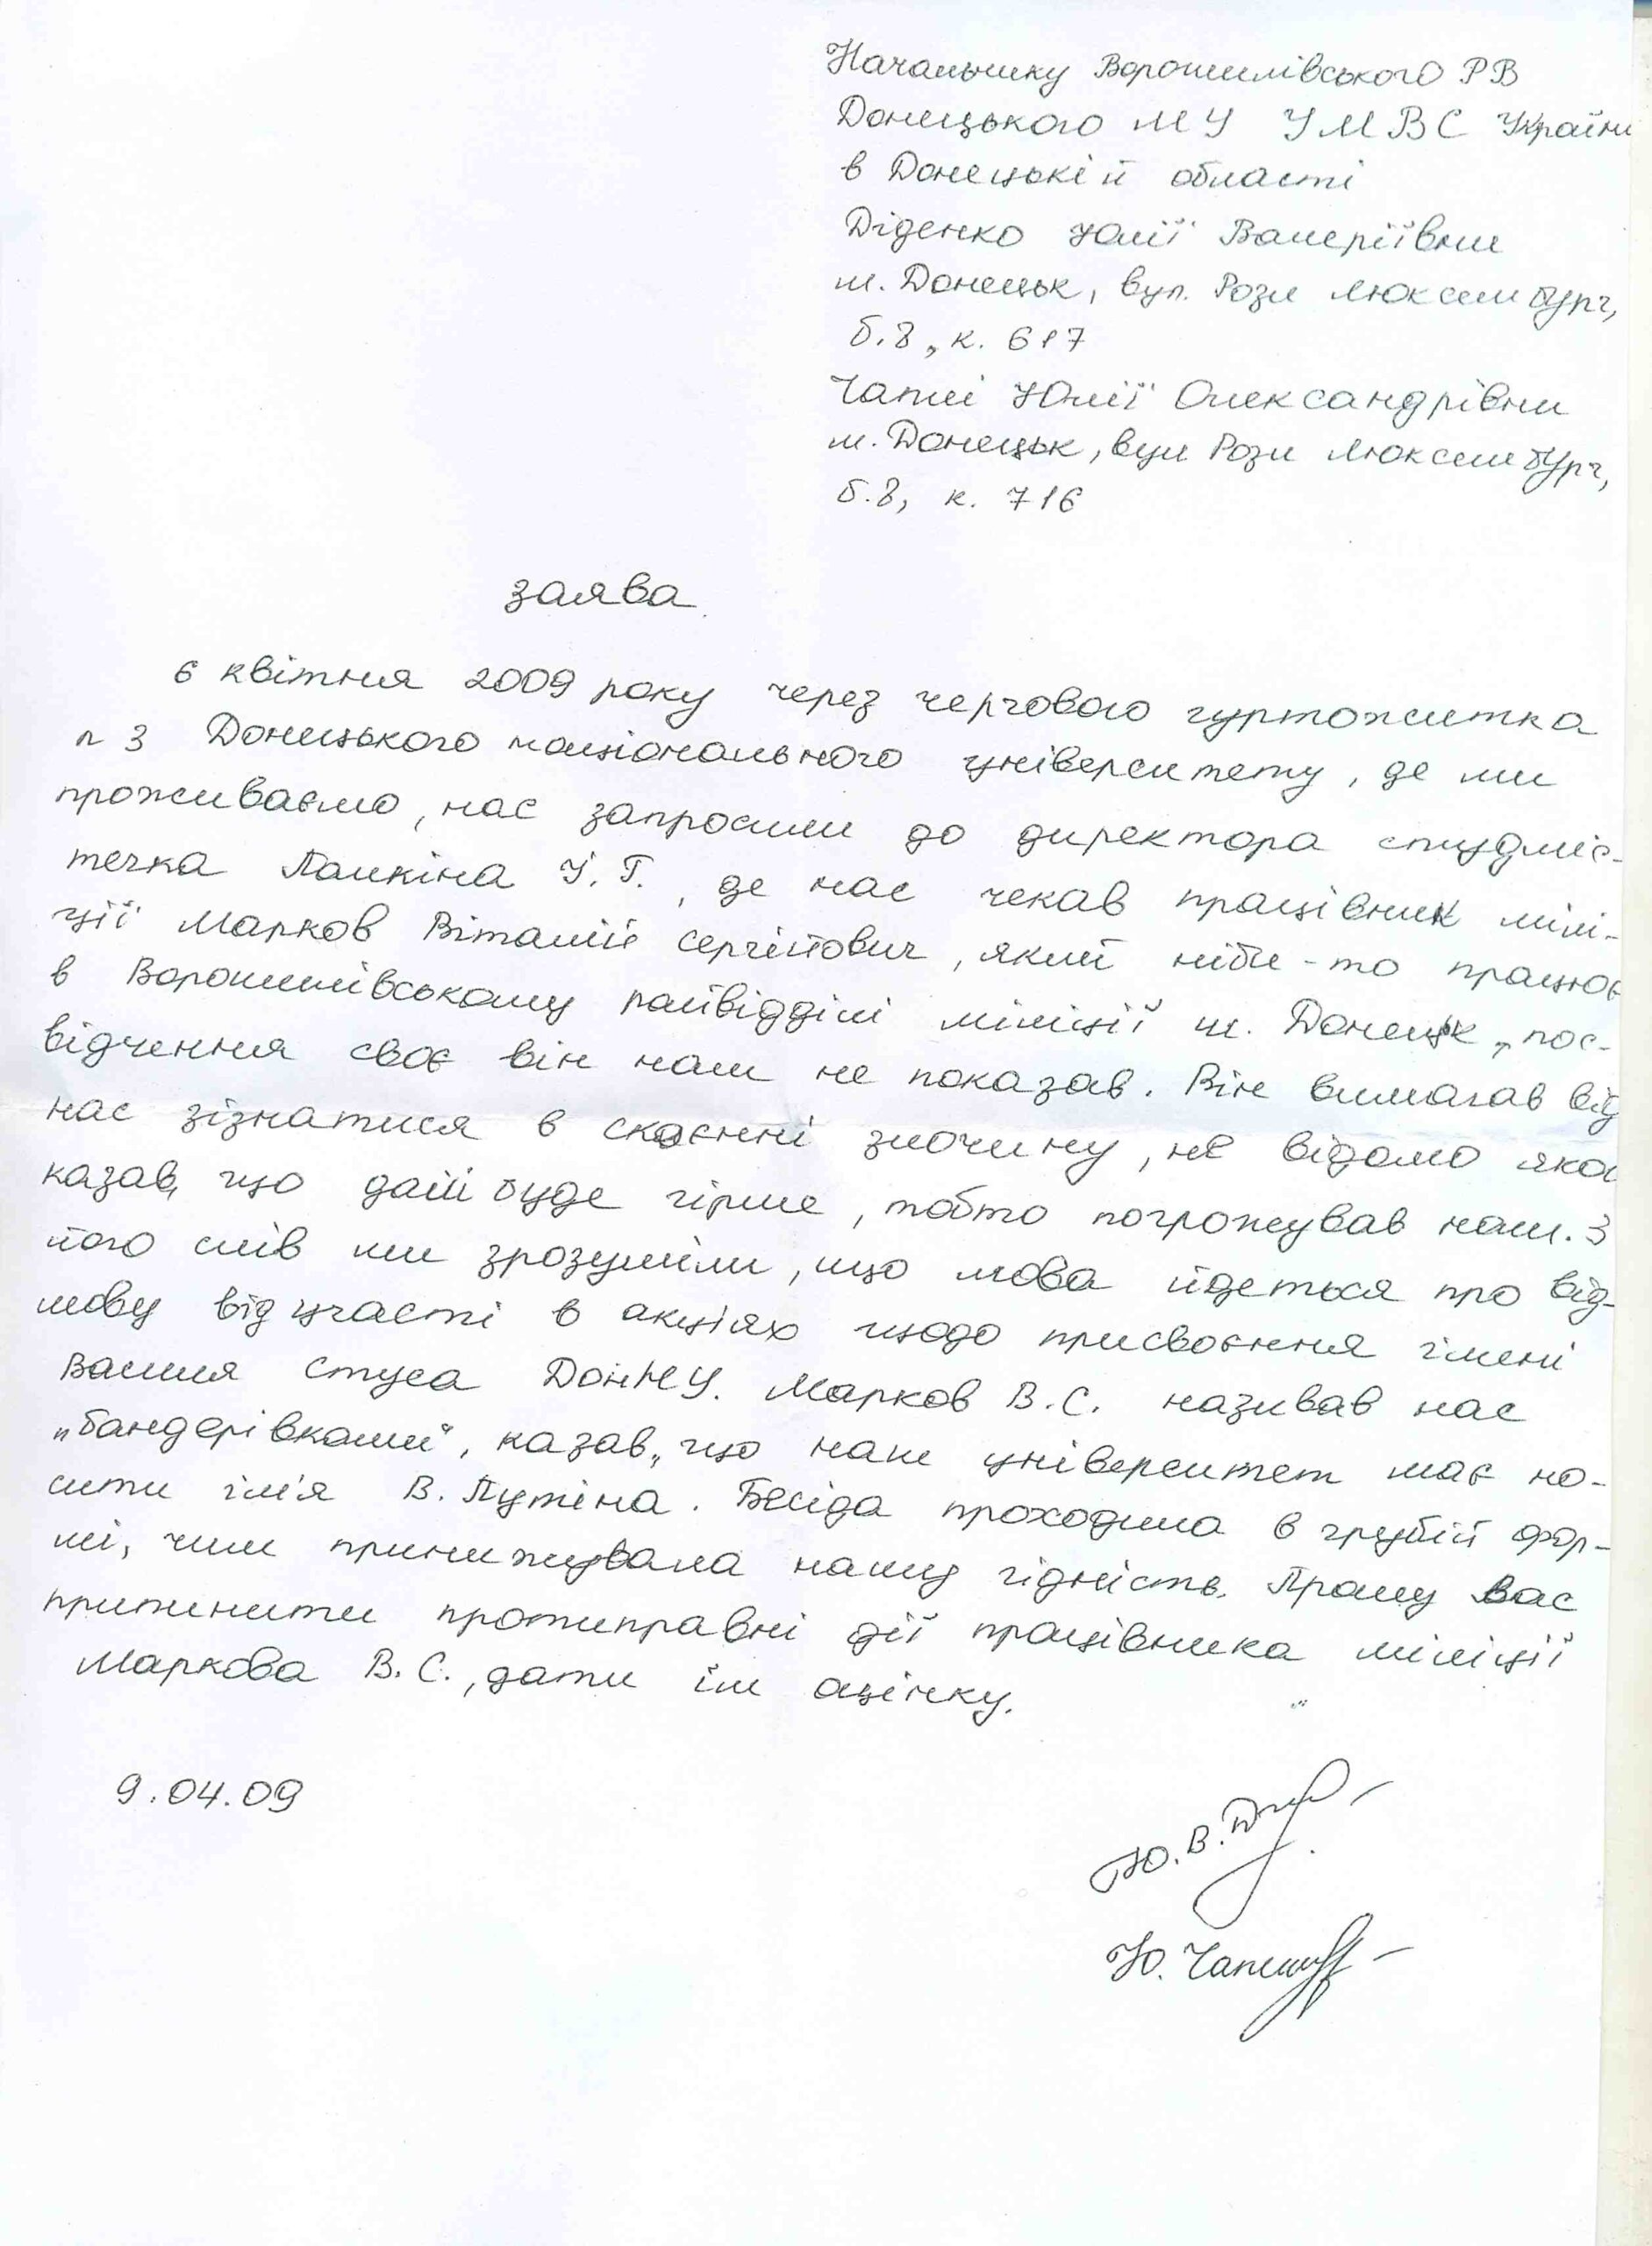 Начальнику Ворошилівського РВ
Донецького МУ УМВС України
в Донецькій області
Діденко Юлії Валеріївни
м. Донецьк, вул. Рози Люксембург,
б.8, к. 617
Чаплі Юлії Олександрівни
м. Донецьк, вул Рози Люксембург,
б.8, к. 716
заява.
6 квітня 2009 року через чергового гуртожитка
n 3 Донецького національного університету, де ми
проживаємо, нас запросили до директора студміс-
течка Палкіна І. Г., де нас чекав працівник мілі-
ції Марков Віталій Сергійович, який ніби-то працює
в Ворошилівському райвідділі міліції м. Донецьк, пос-
відчення своє він нам не показав. Він вимагав від
нас зізнатися в скоєнні злочину, не відомо яко
казав, що далі буде гірше, тобто погрожував нам. З
його слів ми зрозуміли, що мова йдеться про від-
мову від участі в акціях щодо присвоєння імені
Василя Стуса ДонНУ. Марков В.С. називав нас
„бандерівками", казав, що наш університет має но-
сити ім'я В. Путіна. Бесіда проходила в грубій фор-
мі, чим принижувала нашу гідність. Прошу Вас
припинити протиправні дії працівника міліції
Маркова В.С., дати їм оцінку.
9.04.09
Ю.В.
Ю.